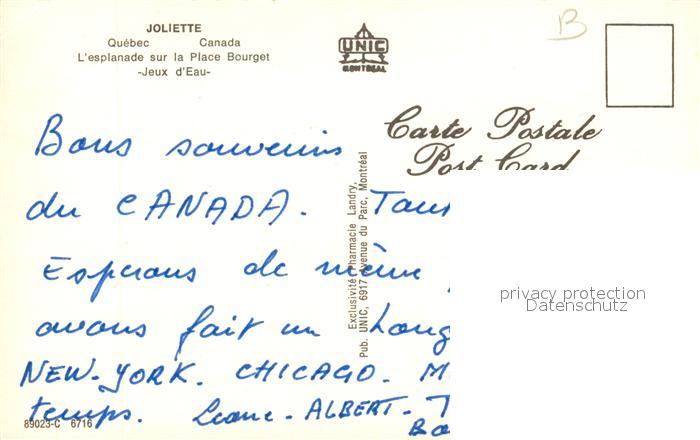 JOLIETTE
Québec Canada
L'esplanade sur la Place Bourget
-Jeux d'Eau-
UNIC
MONTREAL
B
Carte Postale
Post Card
Bons souvenirs
du CANADA. Tous
Esperons de même
avons fait un Long
NEW-YORK. CHICAGO. M
temps. - ALBERT - T
Bo
Exclusivité Pharmacie Landry,
Pub. UNIC, 6917 Avenue du Parc, Montréal
89023-C 6716
privacy protection
Datenschutz